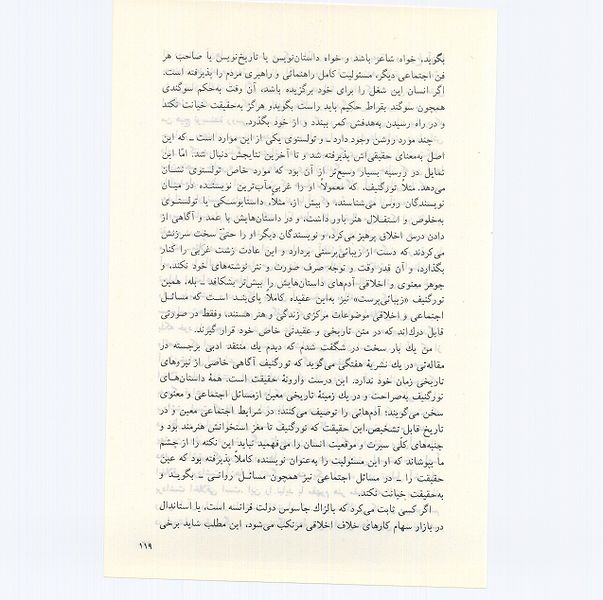 بگوید، خواه شاعر باشد و خواه داستان‌نویس یا تاریخ‌نویس یا صاحب هر
فن اجتماعی دیگر، مسئولیت کامل راهنمائی و راهبری مردم را پذیرفته است.
اگر انسان این شغل را برای خود برگزیده باشد، آن وقت به‌حکم سوگندی
همچون سوگند بقراط حکیم باید راست بگوید و هرگز به‌حقیقت خیانت نکند
و در راه رسیدن به‌هدفش کمر ببندد و از خود بگذرد.
چند مورد روشن وجود دارد ـ و تولستوی یکی از این موارد است ـ که این
اصل به‌معنای حقیقی‌اش پذیرفته شد و تا آخرین نتایجش دنبال شد. امّا این
تمایل در روسیه بسیار وسیع‌تر از آن بود که مورد خاص تولستوی نشان
می‌دهد. مثلاً تورگنیف، که معمولاً او را غربی‌مآب‌ترین نویسنده در میان
نویسندگان روس می‌شناسند، و بیش از، مثلاً، داستایوسکی یا تولستوی
به‌خلوص و استقلال هنر باور داشت، و در داستان‌هایش با عمد و آگاهی از
دادن درس اخلاق پرهیز می‌کرد، و نویسندگان دیگر او را حتیّ سخت سرزنش
می‌کردند که دست از زیبائی‌پرستی بردارد و این عادت زشت غربی را کنار
بگذارد، و آن قدر وقت و توجه صرف صورت و نثر نوشته‌های خود نکند، و
جوهر معنوی و اخلاقی آدم‌های داستان‌هایش را بیش‌تر بشکافد ـ بله، همین
تورگنیف «زیبائی‌پرست» نیز به‌این عقیده کاملاً پای‌بند است که مسائل
اجتماعی و اخلاقی موضوعات مرکزی زندگی و هنر هستند، و فقط در صورتی
قابل درك‌اند که در متن تاریخی و عقیدتی خاص خود قرار گیرند.
من یك بار سخت در شگفت شدم که دیدم یك منتقد ادبی برجسته در
مقاله‌ئی در یك نشریهٔ هفتگی می‌گوید که تورگنیف آگاهی خاصی از نیروهای
تاریخی زمان خود ندارد. این درست وارونهٔ حقیقت است. همهٔ داستان‌های
تورگنیف به‌صراحت و در یك زمینهٔ تاریخی معین از مسائل اجتماعی و معنوی
سخن می‌گویند؛ آدم‌هائی را توصیف می‌کنند؛ در شرایط اجتماعی معین و در
تاریخ قابل تشخیص. این حقیقت که تورگنیف تا مغز استخوانش هنرمند بود و
جنبه‌های کلّی سیرت و موقعیت انسان را می‌فهمید نباید این نکته را از چشم
ما بپوشاند که او این مسئولیت را به‌عنوان نویسنده کاملاً پذیرفته بود که عین
حقیقت را ـ در مسائل اجتماعی نیز همچون مسائل روانی ـ بگوید و
به‌حقیقت خیانت نکند.
اگر کسی ثابت می‌کرد که بالزاك جاسوس دولت فرانسه است، یا استاندال
در بازار سهام کارهای خلاف اخلاقی مرتکب می‌شود، این مطلب شاید برخی
۱۱۹